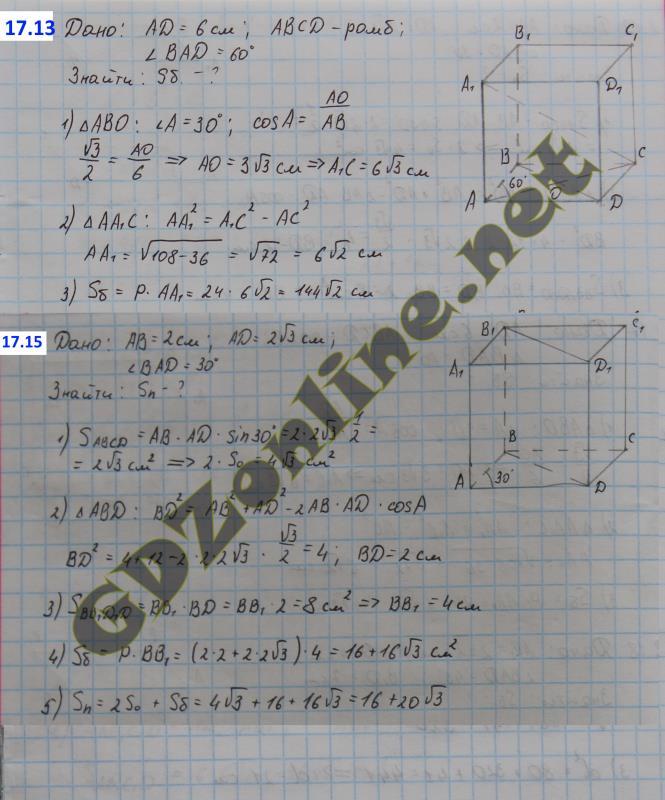 17.13 Дано: AD = 6 см; ABCD - ромб;
∠BAD = 60°
Знайти: Sб - ?
1) △ABO: ∠A = 30°; cosA = AO/AB
√3/2 = AO/6 => AO = 3√3 см => A₁C = 6√3 см
2) △AA₁C: AA₁² = A₁C² - AC²
AA₁ = √108-36 = √72 = 6√2 см
3) Sб = P · AA₁ = 24 · 6√2 = 144√2 см
B₁ C₁
A₁ D₁
B C
60°
O
A D
17.15 Дано: AB = 2 см; AD = 2√3 см;
∠BAD = 30°
Знайти: Sп - ?
1) SABCD = AB · AD · sin30° = 2 · 2√3 · 1/2 =
= 2√3 см² => 2 · So = 4√3 см²
2) △ABD: BD² = AB² + AD² - 2AB · AD · cosA
BD² = 4 + 12 - 2 · 2 · 2√3 · √3/2 = 4; BD = 2 см
3) SBB₁D₁D = BB₁ · BD = BB₁ · 2 = 8 см² => BB₁ = 4 см
4) Sб = P · BB₁ = (2·2 + 2·2√3) · 4 = 16 + 16√3 см²
5) Sп = 2So + Sб = 4√3 + 16 + 16√3 = 16 + 20√3
B₁ C₁
A₁ D₁
B C
A 30° D
GDZonline.net